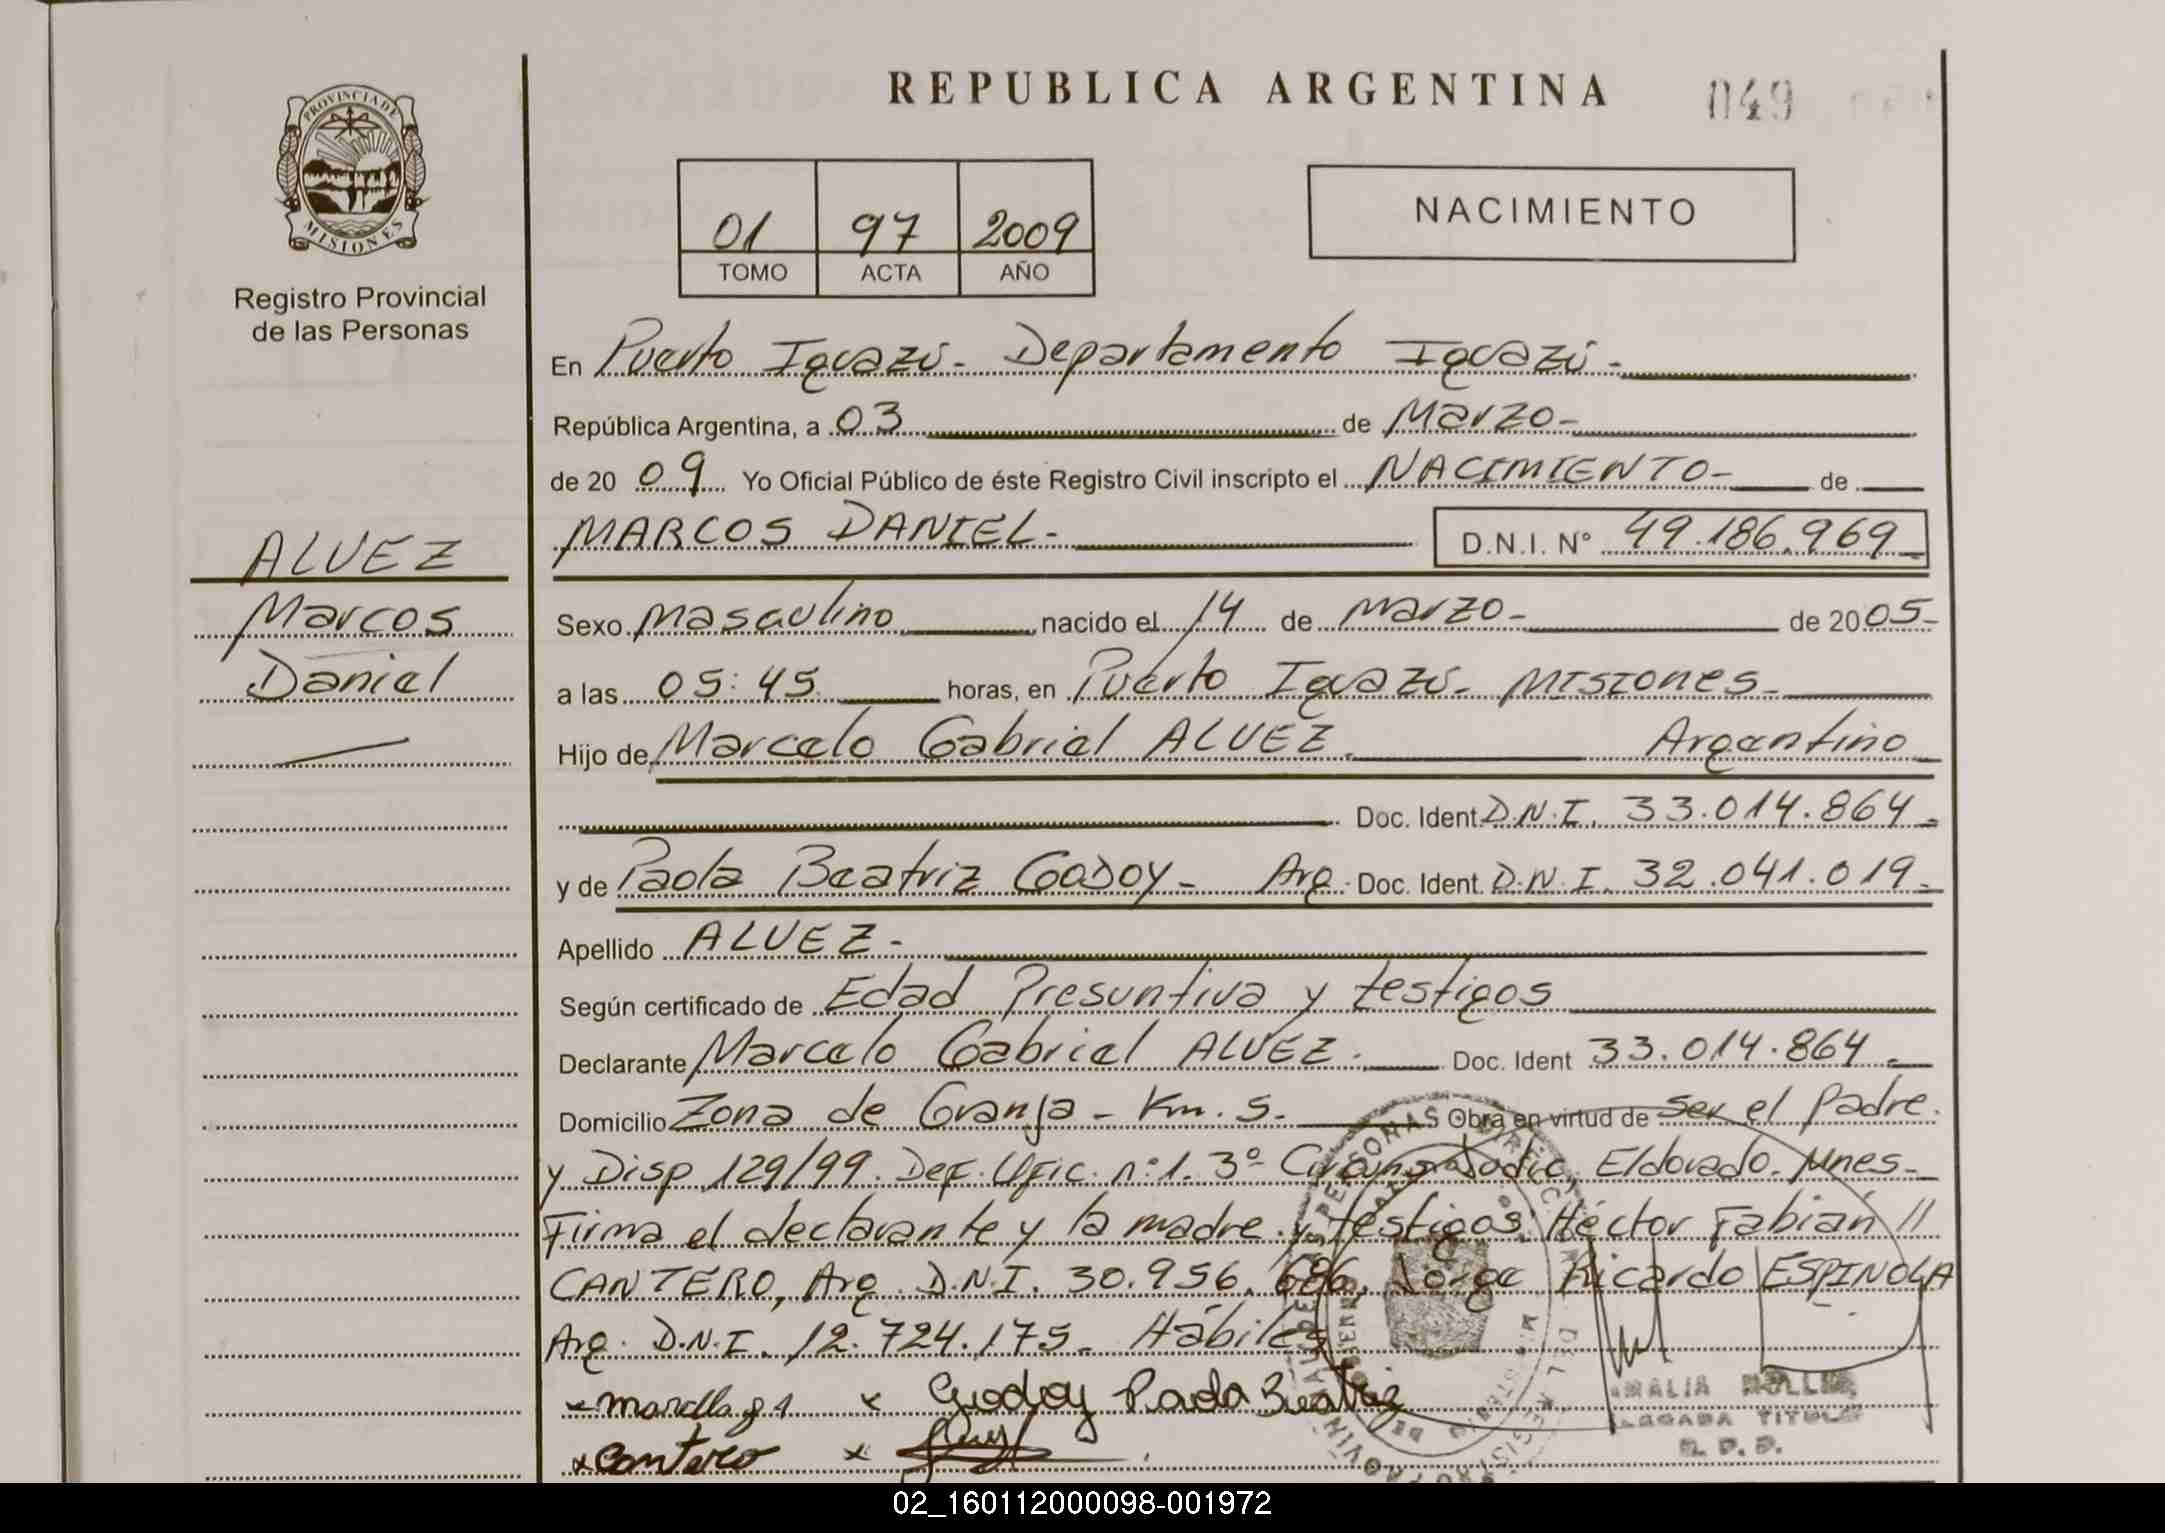 REPUBLICA ARGENTINA
049
PROVINCIA DE
MISIONES
Registro Provincial
de las Personas
01 97 2009
TOMO ACTA AÑO
NACIMIENTO
En Puerto Iguazú- Departamento Iguazú-
República Argentina, a 03 de Marzo-
de 20 09 Yo Oficial Público de éste Registro Civil inscripto el NACIMIENTO- de
MARCOS DANIEL- D.N.I. N° 49.186.969-
ALVEZ
Marcos
Daniel
Sexo Masculino nacido el 14 de Marzo- de 2005-
a las 05:45 horas, en Puerto Iguazú- MISIONES-
Hijo de Marcelo Gabriel ALVEZ. Argentino
Doc. Ident D.N.I. 33.014.864-
y de Paola Beatriz GODOY- Arg. Doc. Ident. D.N.I. 32.041.019-
Apellido ALVEZ-
Según certificado de Edad Presuntiva y testigos
Declarante Marcelo Gabriel ALVEZ. Doc. Ident 33.014.864.-
Domicilio Zona de Granja - Km. 5. S Obra en virtud de ser el Padre.
y Disp 129/99. Def. Ofic. n°:1. 3º Circuns. Judic, Eldorado. Mnes-
Firma el declarante y la madre y testigos: Héctor Fabián //
CANTERO, Arg. D.N.I. 30.956.686, Jorge Ricardo ESPINOLA
Arg. D.N.I. 12.724.175- Hábiles
x x Godoy Paola Beatriz
x Cantero x
02_160112000098-001972